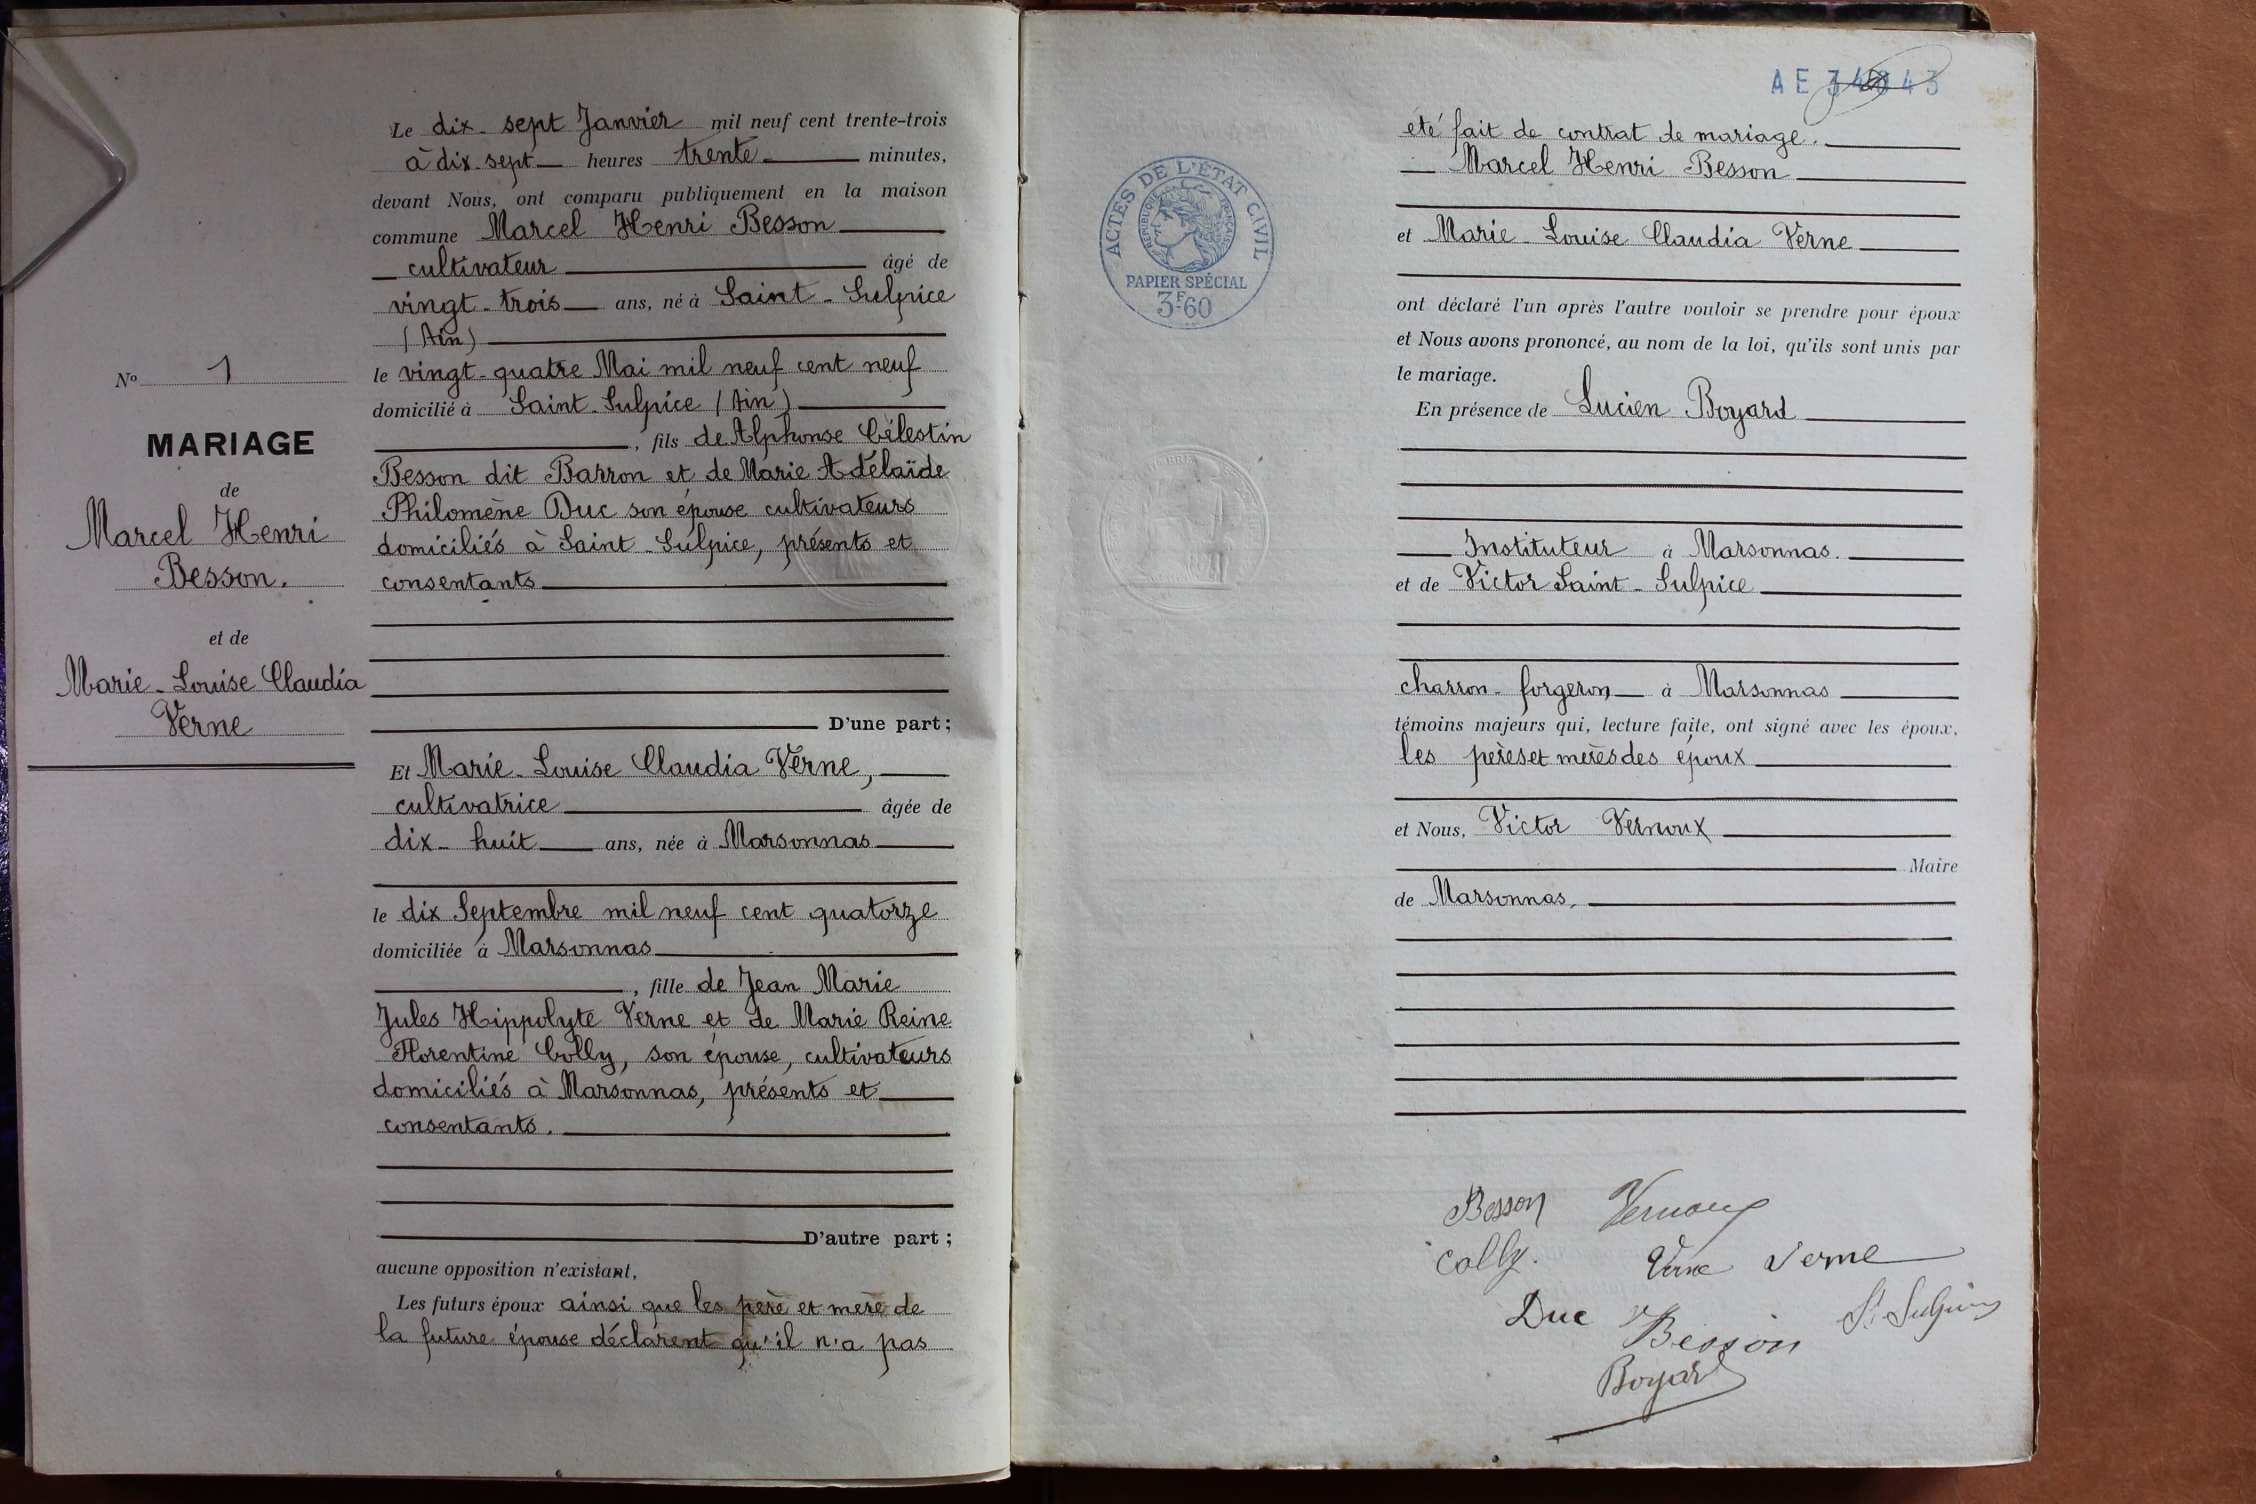 Nº 1
MARIAGE
de
Marcel Henri
Besson.
et de
Marie-Louise Claudia
Verne
Le dix-sept Janvier mil neuf cent trente-trois
à dix-sept heures trente minutes,
devant Nous, ont comparu publiquement en la maison
commune Marcel Henri Besson
cultivateur âgé de
vingt-trois ans, né à Saint-Sulpice
(Ain)
le vingt-quatre Mai mil neuf cent neuf
domicilié à Saint-Sulpice (Ain)
, fils de Alphonse Célestin
Besson dit Barron et de Marie Adélaïde
Philomène Duc son épouse cultivateurs
domiciliés à Saint-Sulpice, présents et
consentants
D'une part ;
Et Marie-Louise Claudia Verne,
cultivatrice âgée de
dix-huit ans, née à Marsonnas
le dix Septembre mil neuf cent quatorze
domiciliée à Marsonnas
, fille de Jean Marie
Jules Hippolyte Verne et de Marie Reine
Florentine Colly, son épouse, cultivateurs
domiciliés à Marsonnas, présents et
consentants.
D'autre part ;
aucune opposition n'existant,
Les futurs époux ainsi que les père et mère de
la future épouse déclarent qu'il n'a pas
AE
ACTES DE L'ÉTAT CIVIL
RÉPUBLIQUE FRANÇAISE
PAPIER SPÉCIAL
3F60
été fait de contrat de mariage.
Marcel Henri Besson
et Marie-Louise Claudia Verne
ont déclaré l'un après l'autre vouloir se prendre pour époux
et Nous avons prononcé, au nom de la loi, qu'ils sont unis par
le mariage.
En présence de Lucien Boyard
Instituteur à Marsonnas.
et de Victor Saint-Sulpice
charron-forgeron à Marsonnas
témoins majeurs qui, lecture faite, ont signé avec les époux,
les pères et mères des époux
et Nous, Victor Vernoux
Maire
de Marsonnas.
Besson Vernoux
Colly. Verne Verne
Duc St Sulpice
Besson
Boyard